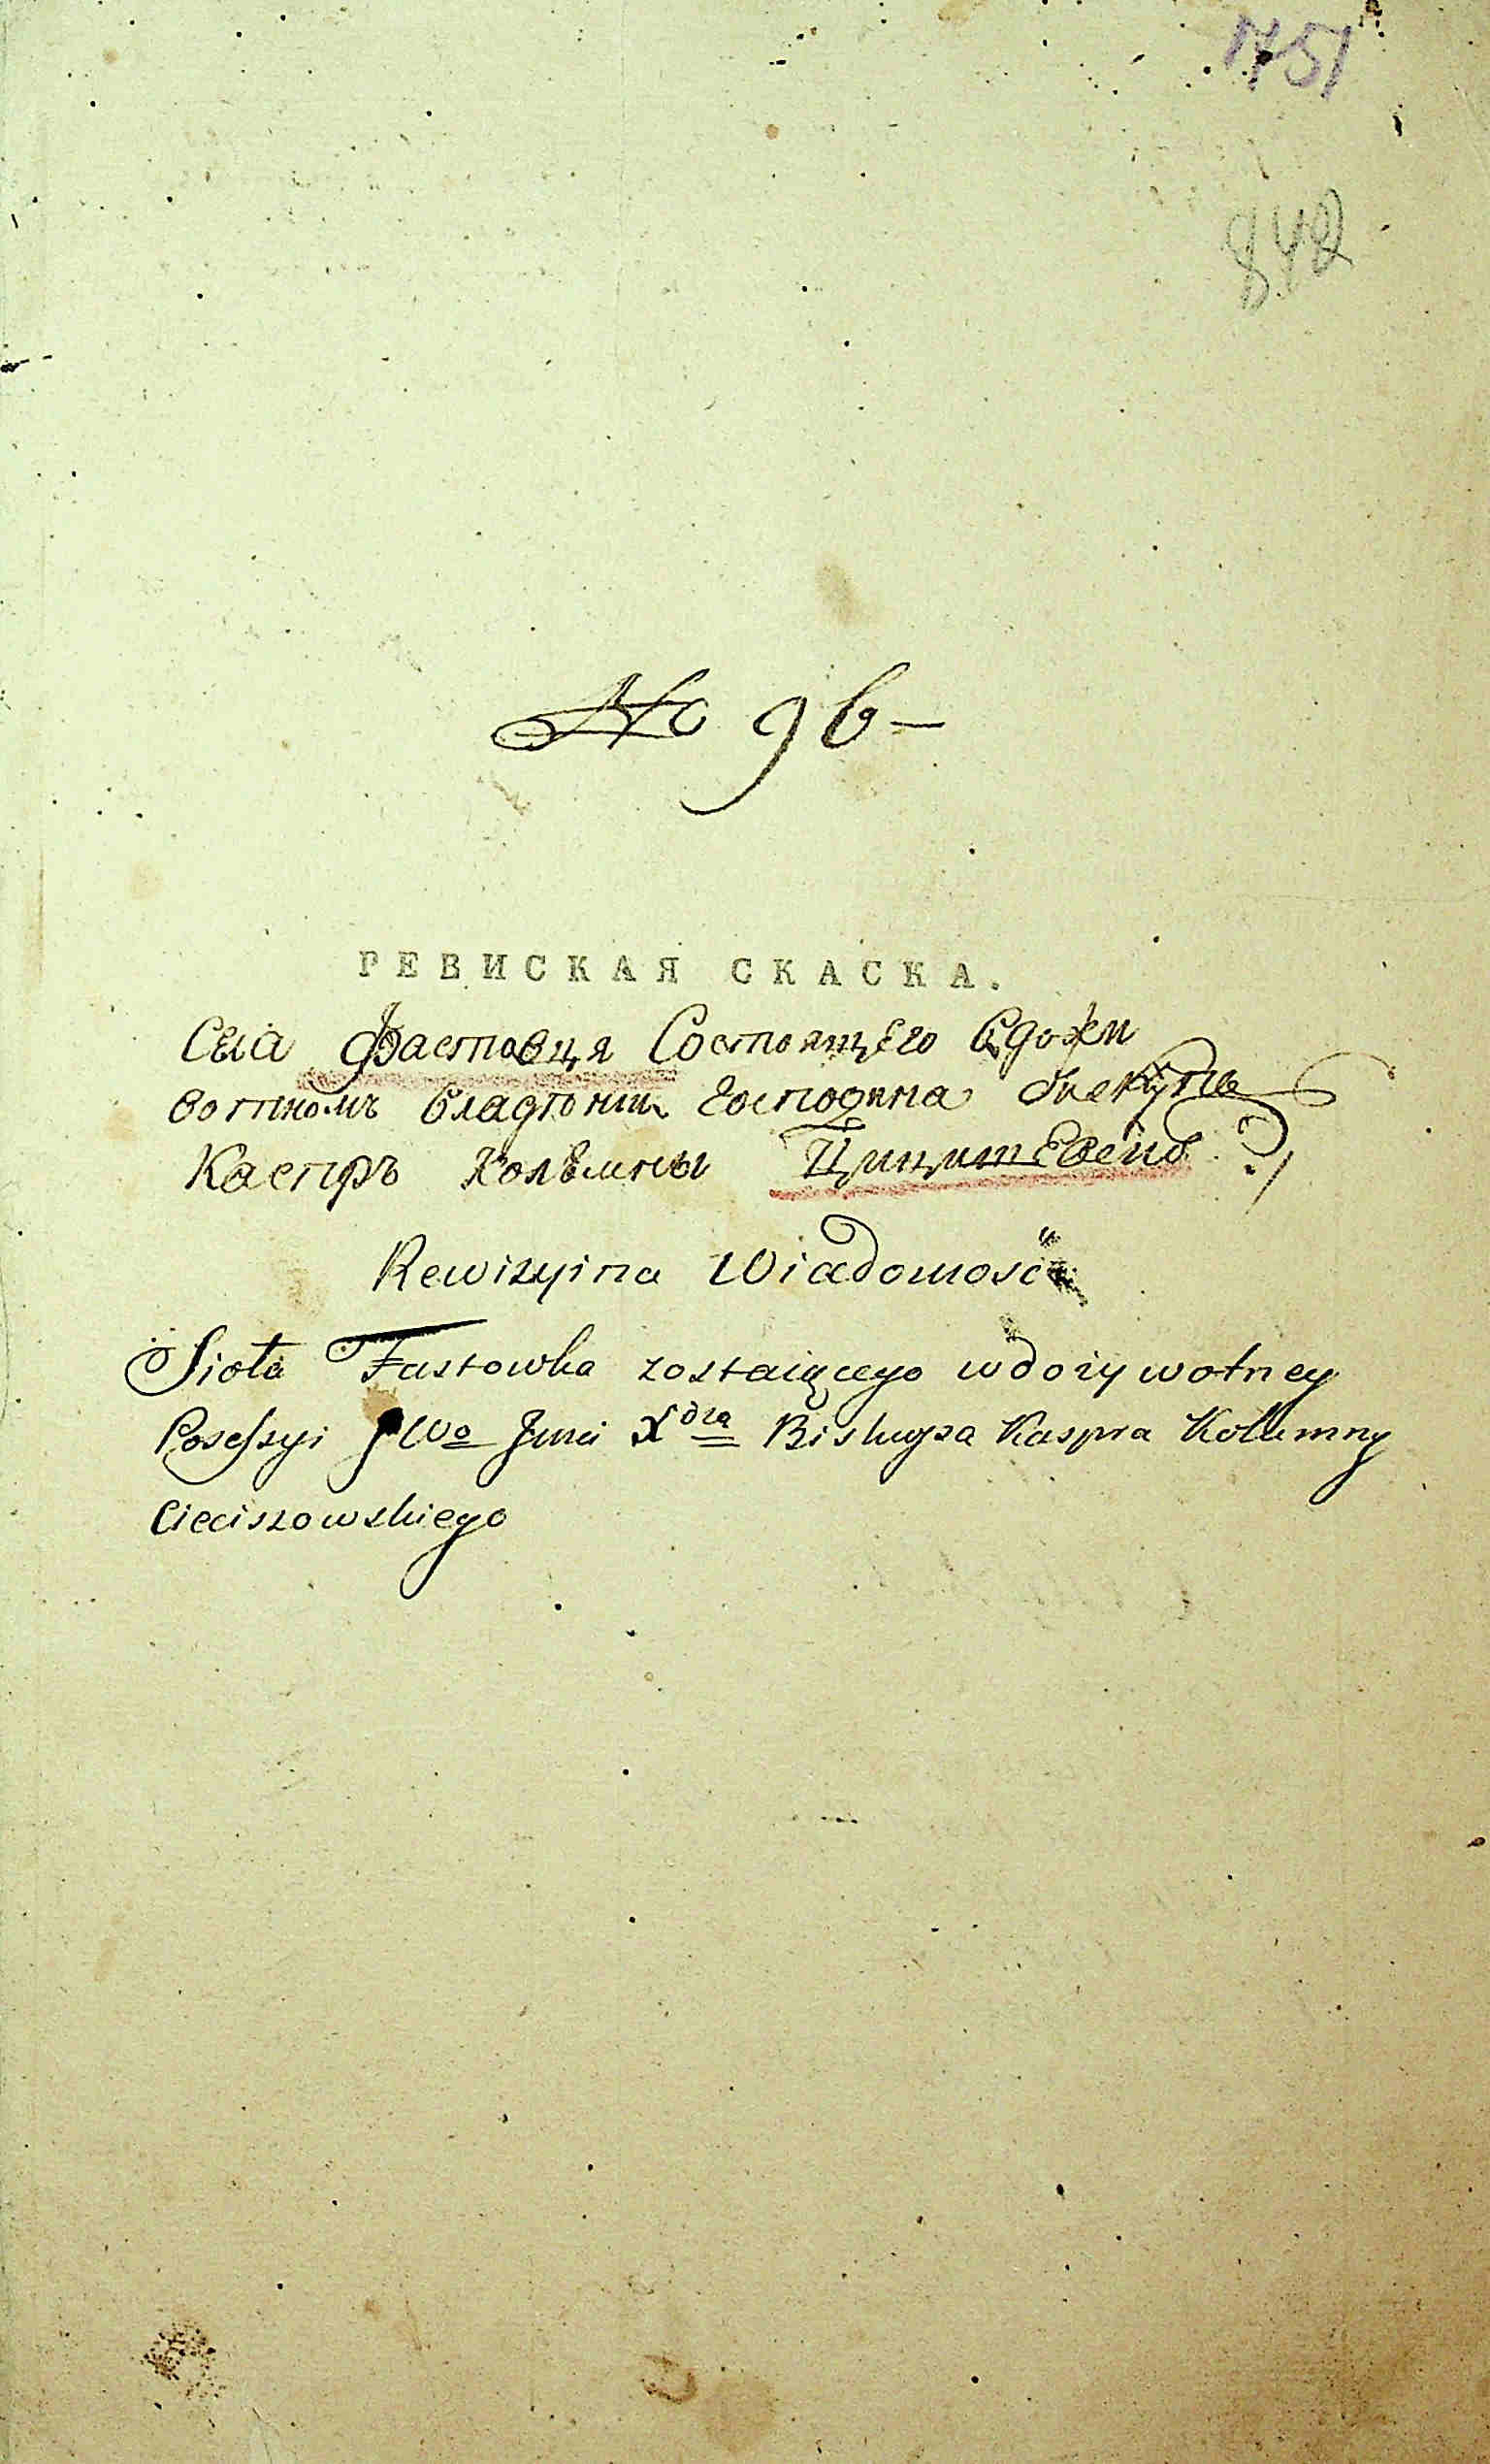 1751
842
No 96 —
РЕВИСКАЯ СКАСКА.
Села Фастовця Состоящего вдожи
вотномъ владѣнии Господина
Каспръ Колѣмны
Rewizyina Wiadomość
Sioła Fastowka zostaiącego w dożywotney
Posessyi JWo Jmci Xdza Biskupa Kaspra Kolumny
Cieciszowskiego